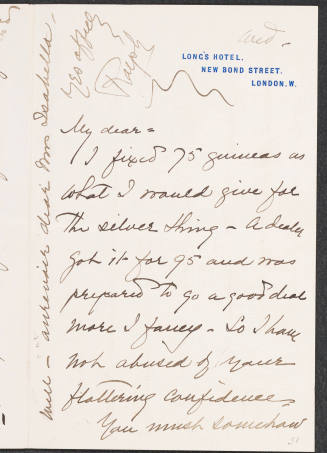 ansd.
LONG'S HOTEL,
NEW BOND STREET,
LONDON. W.
Ralph
My dear =
I fixed 75 guineas as
what I would give for
the silver thing - A dealer
got it for 95 and was
prepared to go a good deal
more I fancy - So I have
not abused of your
flattering confidence -
You must somehow
well - aurevoir dear Mrs Isabella.